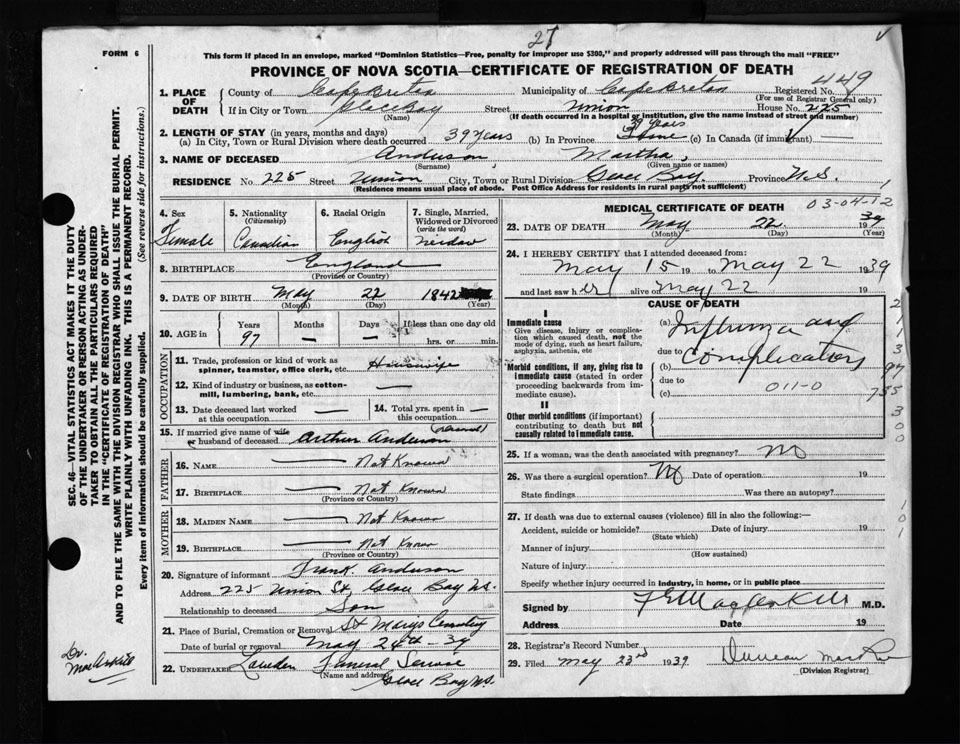 27
FORM 6
This form if placed in an envelope, marked "Dominion Statistics—Free, penalty for improper use $300," and properly addressed will pass through the mail "FREE"
PROVINCE OF NOVA SCOTIA—CERTIFICATE OF REGISTRATION OF DEATH
449
1. PLACE OF DEATH County of Cape Breton Municipality of Cape Breton Registered No.
(For use of Registrar General only)
If in City or Town Glace Bay Street Union House No. 225
(Name) (If death occurred in a hospital or institution, give the name instead of street and number)
2. LENGTH OF STAY (in years, months and days)
(a) In City, Town or Rural Division where death occurred 39 years (b) In Province 39 years (c) In Canada (if immigrant)
3. NAME OF DECEASED Anderson, Martha,
(Surname) (Given name or names)
RESIDENCE No. 225 Street Union City, Town or Rural Division Glace Bay. Province N.S.
(Residence means usual place of abode. Post Office Address for residents in rural parts not sufficient)
4. Sex Female
5. Nationality (Citizenship) Canadian
6. Racial Origin English
7. Single, Married, Widowed or Divorced (write the word) Widow
8. BIRTHPLACE England
(Province or Country)
9. DATE OF BIRTH May 22 1842
(Month) (Day) (Year)
10. AGE in Years 97 Months — Days — If less than one day old hrs. or min.
OCCUPATION
11. Trade, profession or kind of work as spinner, teamster, office clerk, etc. Housewife
12. Kind of industry or business, as cotton-mill, lumbering, bank, etc. —
13. Date deceased last worked at this occupation —
14. Total yrs. spent in this occupation —
15. If married give name of wife or husband of deceased Arthur Anderson
FATHER
16. NAME — Not Known
17. BIRTHPLACE — Not Known
(Province or Country)
MOTHER
18. MAIDEN NAME — Not Known
19. BIRTHPLACE — Not Known
(Province or Country)
20. Signature of informant Frank Anderson
Address 225 Union St, Glace Bay N.S.
Relationship to deceased Son
21. Place of Burial, Cremation or Removal St Marys Cemetery
Date of burial or removal May 24th 39
22. UNDERTAKER Funeral Service
(Name and address) Glace Bay N.S.
MEDICAL CERTIFICATE OF DEATH 03-04-12
23. DATE OF DEATH May 22 1939
(Month) (Day) (Year)
24. I HEREBY CERTIFY that I attended deceased from:
May 15 19 to May 22 1939
and last saw her alive on May 22 19
CAUSE OF DEATH
I
Immediate cause
Give disease, injury or complication which caused death, not the mode of dying, such as heart failure, asphyxia, asthenia, etc
(a) Influenza and
due to
Morbid conditions, if any, giving rise to immediate cause (stated in order proceeding backwards from immediate cause).
(b) Complications
due to
(c)
011-0
II
Other morbid conditions (if important) contributing to death but not causally related to immediate cause.
25. If a woman, was the death associated with pregnancy? No
26. Was there a surgical operation? No Date of operation 19
State findings Was there an autopsy?
27. If death was due to external causes (violence) fill in also the following:—
Accident, suicide or homicide? Date of injury 19
(State which)
Manner of injury
(How sustained)
Nature of injury
Specify whether injury occurred in industry, in home, or in public place
Signed by M.D.
Address Date 19
28. Registrar's Record Number
29. Filed May 23rd 1939 Duncan
(Division Registrar)
SEC. 46—VITAL STATISTICS ACT MAKES IT THE DUTY
OF THE UNDERTAKER OR PERSON ACTING AS UNDER-
TAKER TO OBTAIN ALL THE PARTICULARS REQUIRED
IN THE "CERTIFICATE OF REGISTRATION OF DEATH"
AND TO FILE THE SAME WITH THE DIVISION REGISTRAR WHO SHALL ISSUE THE BURIAL PERMIT.
WRITE PLAINLY WITH UNFADING INK. THIS IS A PERMANENT RECORD.
Every item of information should be carefully supplied. (See reverse side for instructions.)
Dr.
MacAskill